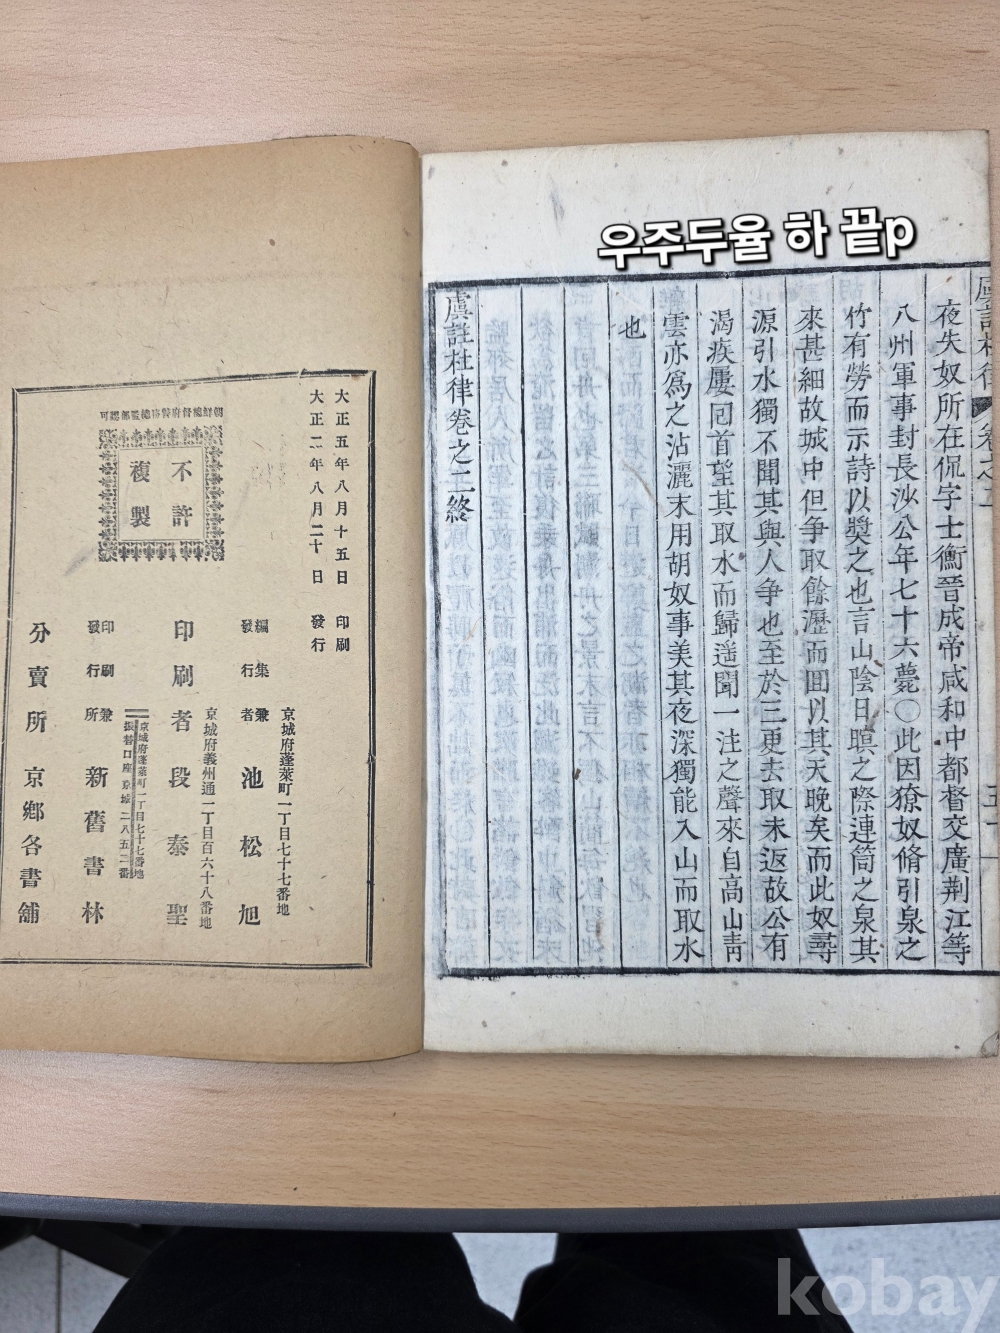 우주두율 하 끝p
虞註杜律 卷之二
夜失奴所在侃字士衡晉成帝咸和中都督交廣荆江等
八州軍事封長沙公年七十六薨○此因獠奴脩引泉之
竹有勞而示詩以奬之也言山陰日暝之際連筒之泉其
來甚細故城中但争取餘瀝而囬以其天晩矣而此奴尋
源引水獨不聞其與人争也至於三更去取未返故公有
渴疾屢囘首望其取水而歸遥聞一注之聲來自高山靑
雲亦爲之沾灑末用胡奴事美其夜深獨能入山而取水
也
虞註杜律卷之二終
大正五年八月十五日 印刷
大正二年八月二十日 發行
朝鮮總督府警務總監部認可
不許
複製
京城府蓬萊町一丁目七十七番地
編集兼
發行者 池松旭
京城府義州通一丁目百六十八番地
印刷者 段泰聖
京城府蓬萊町一丁目七十七番地
振替口座 京城二八五二番
印刷兼
發行所 新舊書林
分賣所 京鄉各書舖
kobay